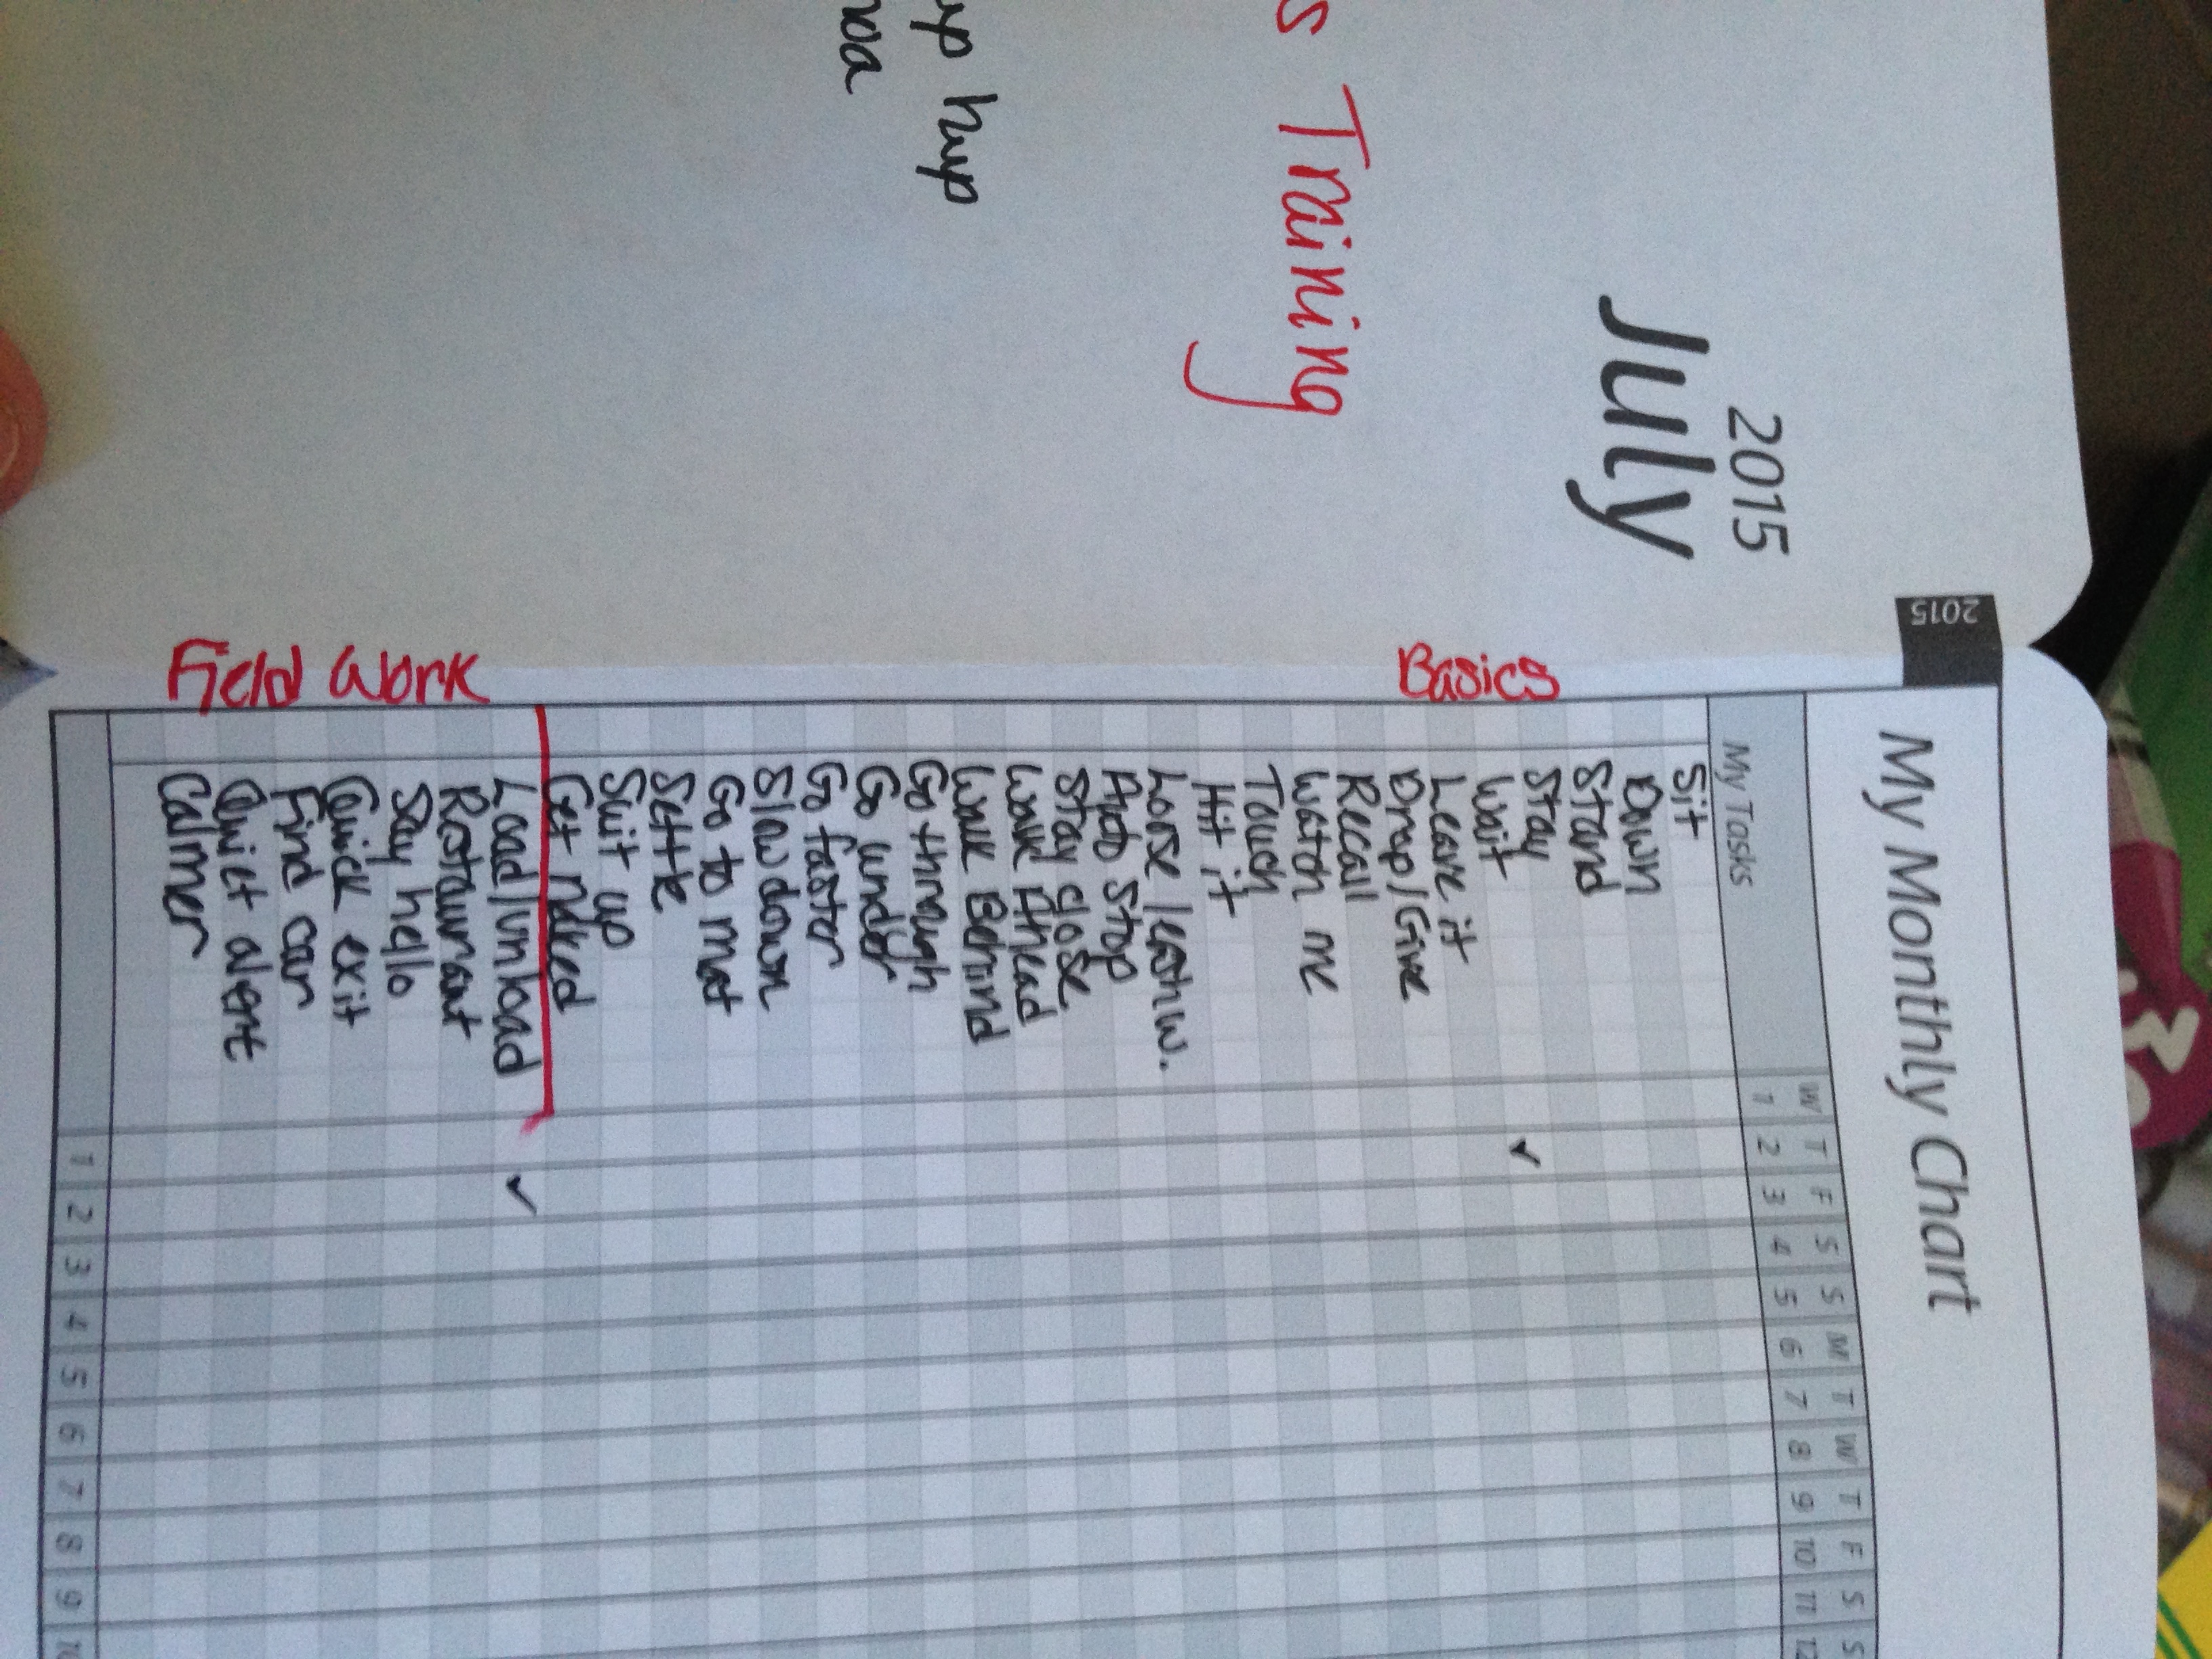 2015
July
s Training
up hup
noa
2015
My Monthly Chart
W T F S S M T W T F S S
My Tasks 1 2 3 4 5 6 7 8 9 10 11 12
Basics
Sit
Down
Stand
Stay ✓
Wait
Leave it
Drop/Give
Recall
Watch me
Touch
Hit it
Loose leash w.
Auto Stop
Stay close
Walk Ahead
Walk Behind
Go through
Go under
Go faster
Slow down
Go to mat
Settle
Suit up
Get naked
Field Work
Load/unload ✓
Restaurant
Say hello
Quick exit
Find car
Quiet alert
Calmer
1 2 3 4 5 6 7 8 9 10